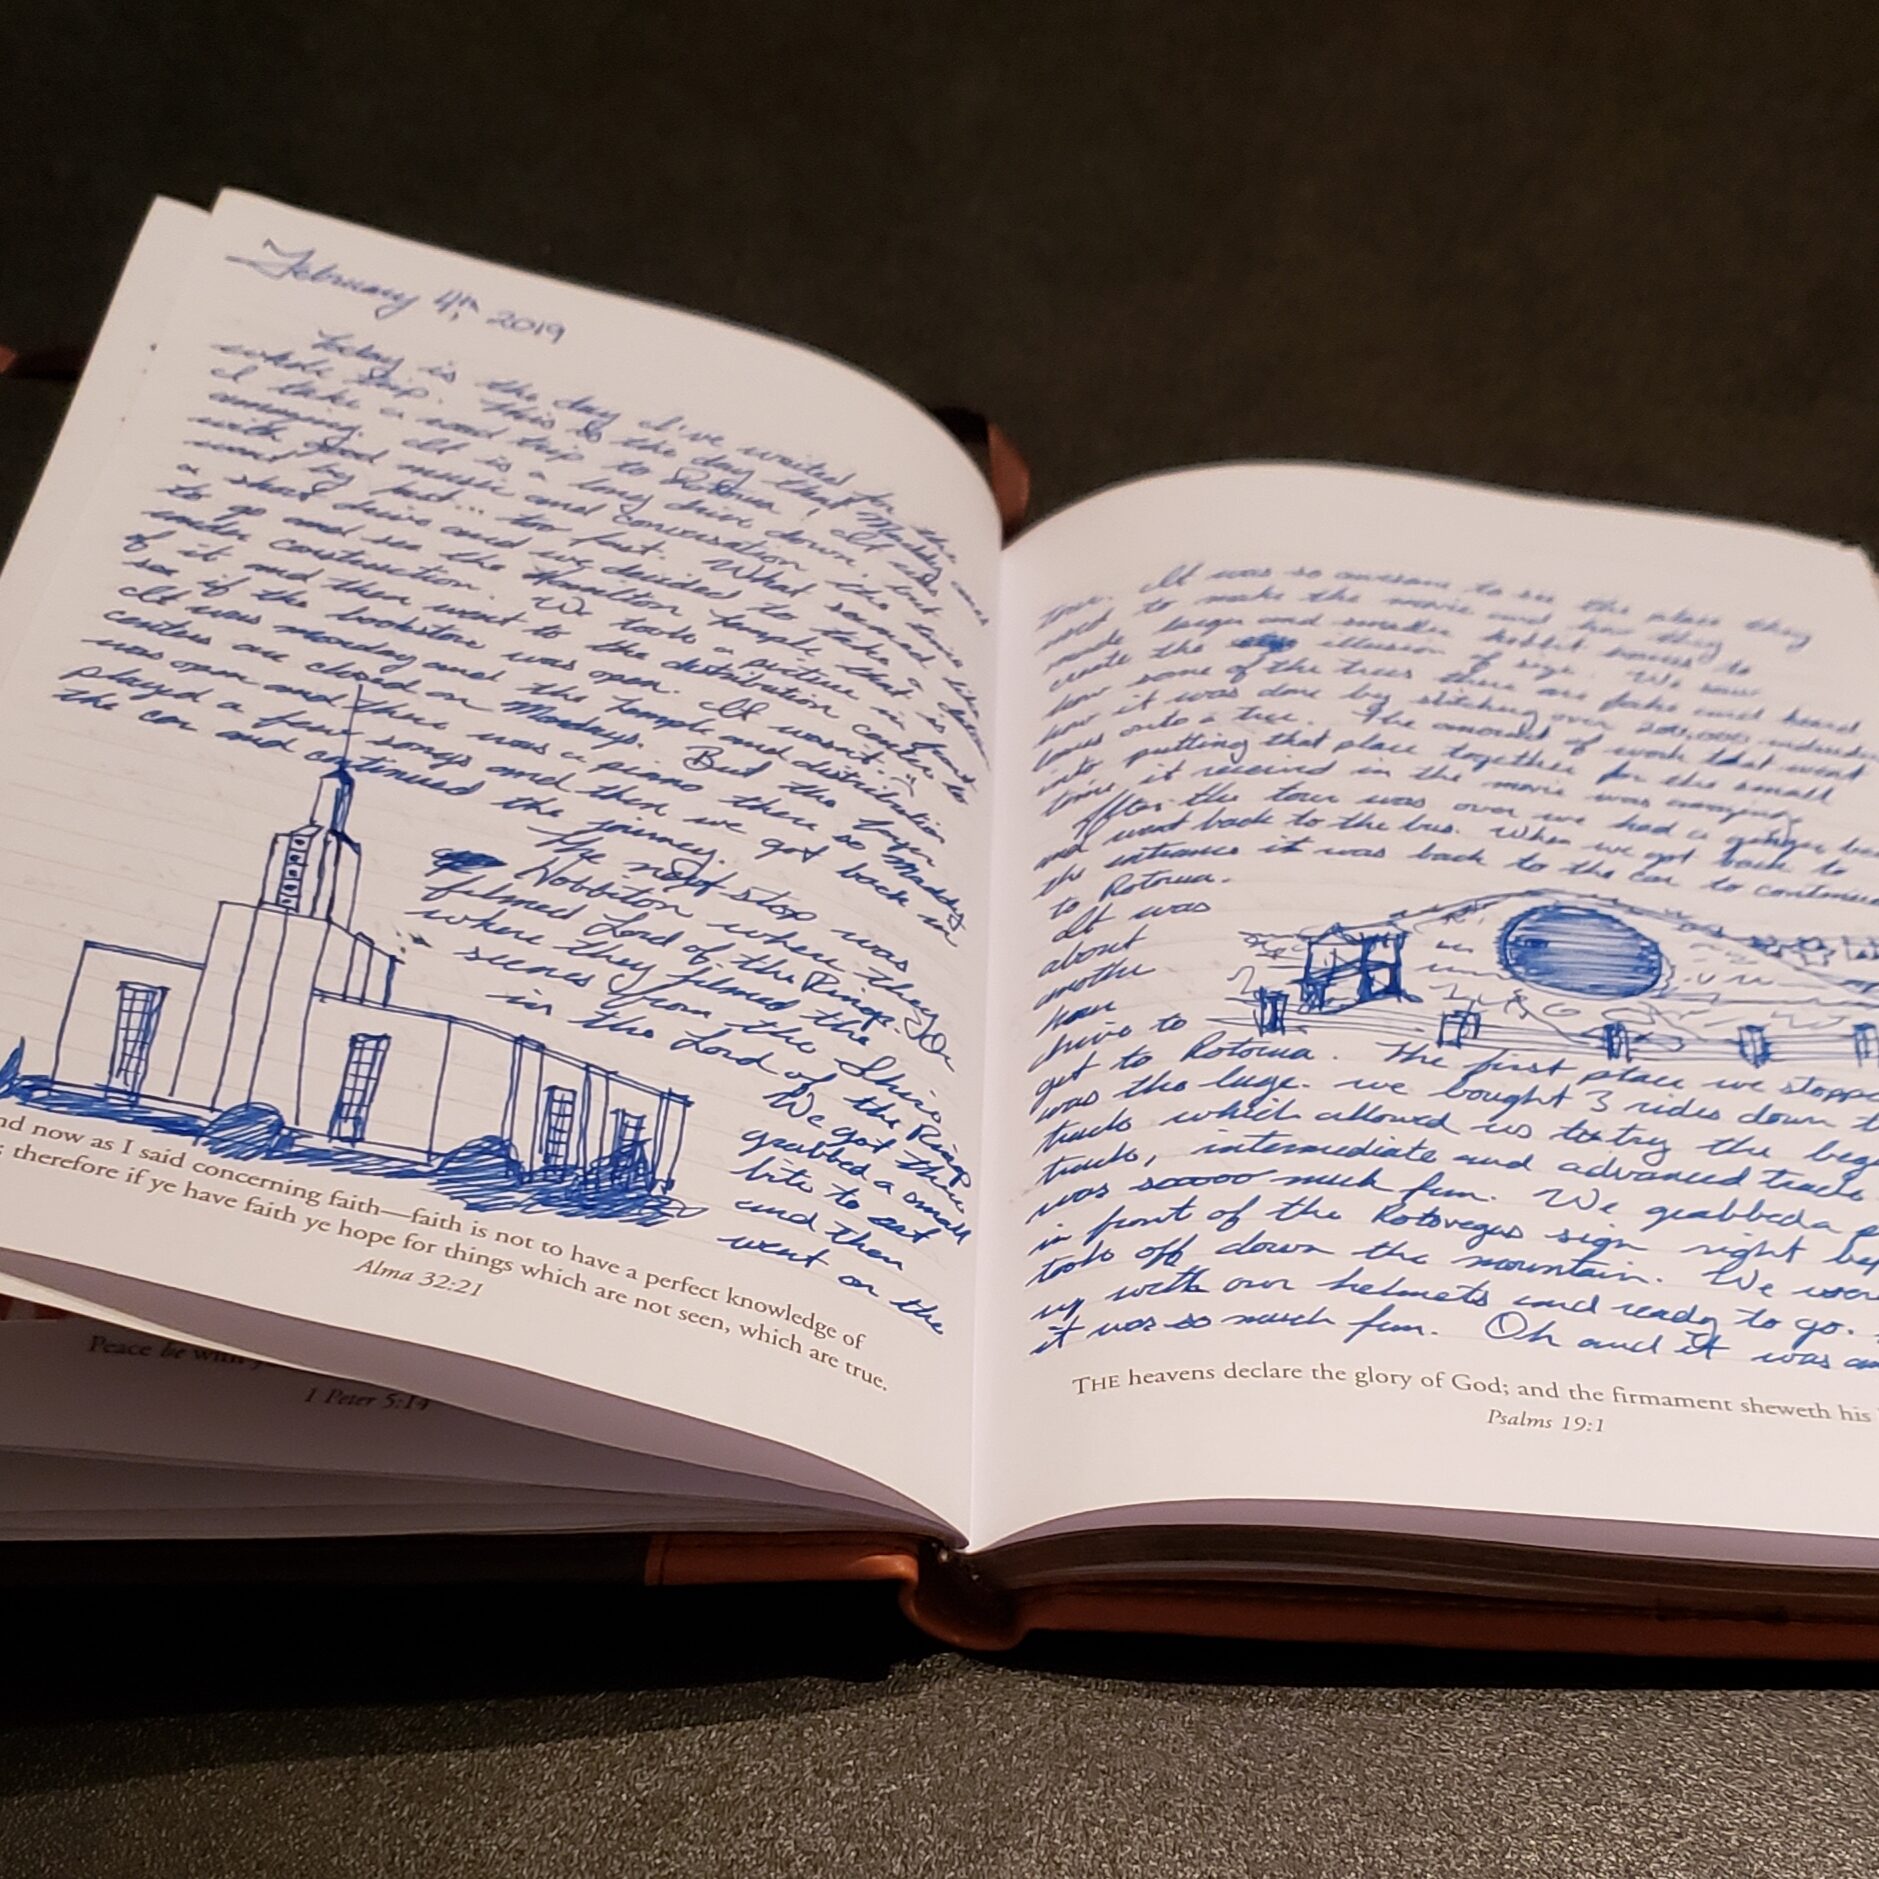 February 4th, 2019
Today is the day I've waited for the
whole trip. This is the day that Maddy and
I take a road trip to Rotorua! It was
amazing. It is a long drive down, but
with good music and conversation the time
went by fast... too fast. What seemed like
a short drive and we decided to take a
to go and see the Hamilton Temple that is
under construction. We took a picture in front
of it and then went to the distribution center to
see if the bookstore was open. It wasn't.
It was monday and the temple and distribution
centers are closed on Mondays. But the
was open and there was a piano there so Maddy
played a few songs and then we got back in
the car and continued the journey.
The next stop was
Hobbiton where they
filmed Lord of the Rings. Or
where they filmed the
scenes from the Shire
in the Lord of the Rings
We got there
grabbed a small
bite to eat
and then
went on the
And now as I said concerning faith—faith is not to have a perfect knowledge of
; therefore if ye have faith ye hope for things which are not seen, which are true.
Alma 32:21
Peace be with
1 Peter 5:14
tour. It was so awesome to see the place they
used to make the movie and how they
made larger and smaller hobbit homes to
create the illusion of size. We saw
how some of the trees there are fake and heard
how it was done by stitching over 200,000
leaves onto a tree. The amount of work that went
into putting that place together for the small
time it received in the movie was amazing.
After the tour was over we had a ginger
and went back to the bus. When we got back to
the entrance it was back to the car to continue
to Rotorua.
It was
about
another
hour
drive to
get to Rotorua. The first place we stopped
was the luge. We bought 3 rides down
track which allowed us to try the
track, intermediate and advanced tracks
was sooooo much fun. We grabbed a
in front of the Rotovegas sign right
took off down the mountain. We were
up with our helmets and ready to go.
it was so much fun. Oh and it was
THE heavens declare the glory of God; and the firmament sheweth his
Psalms 19:1